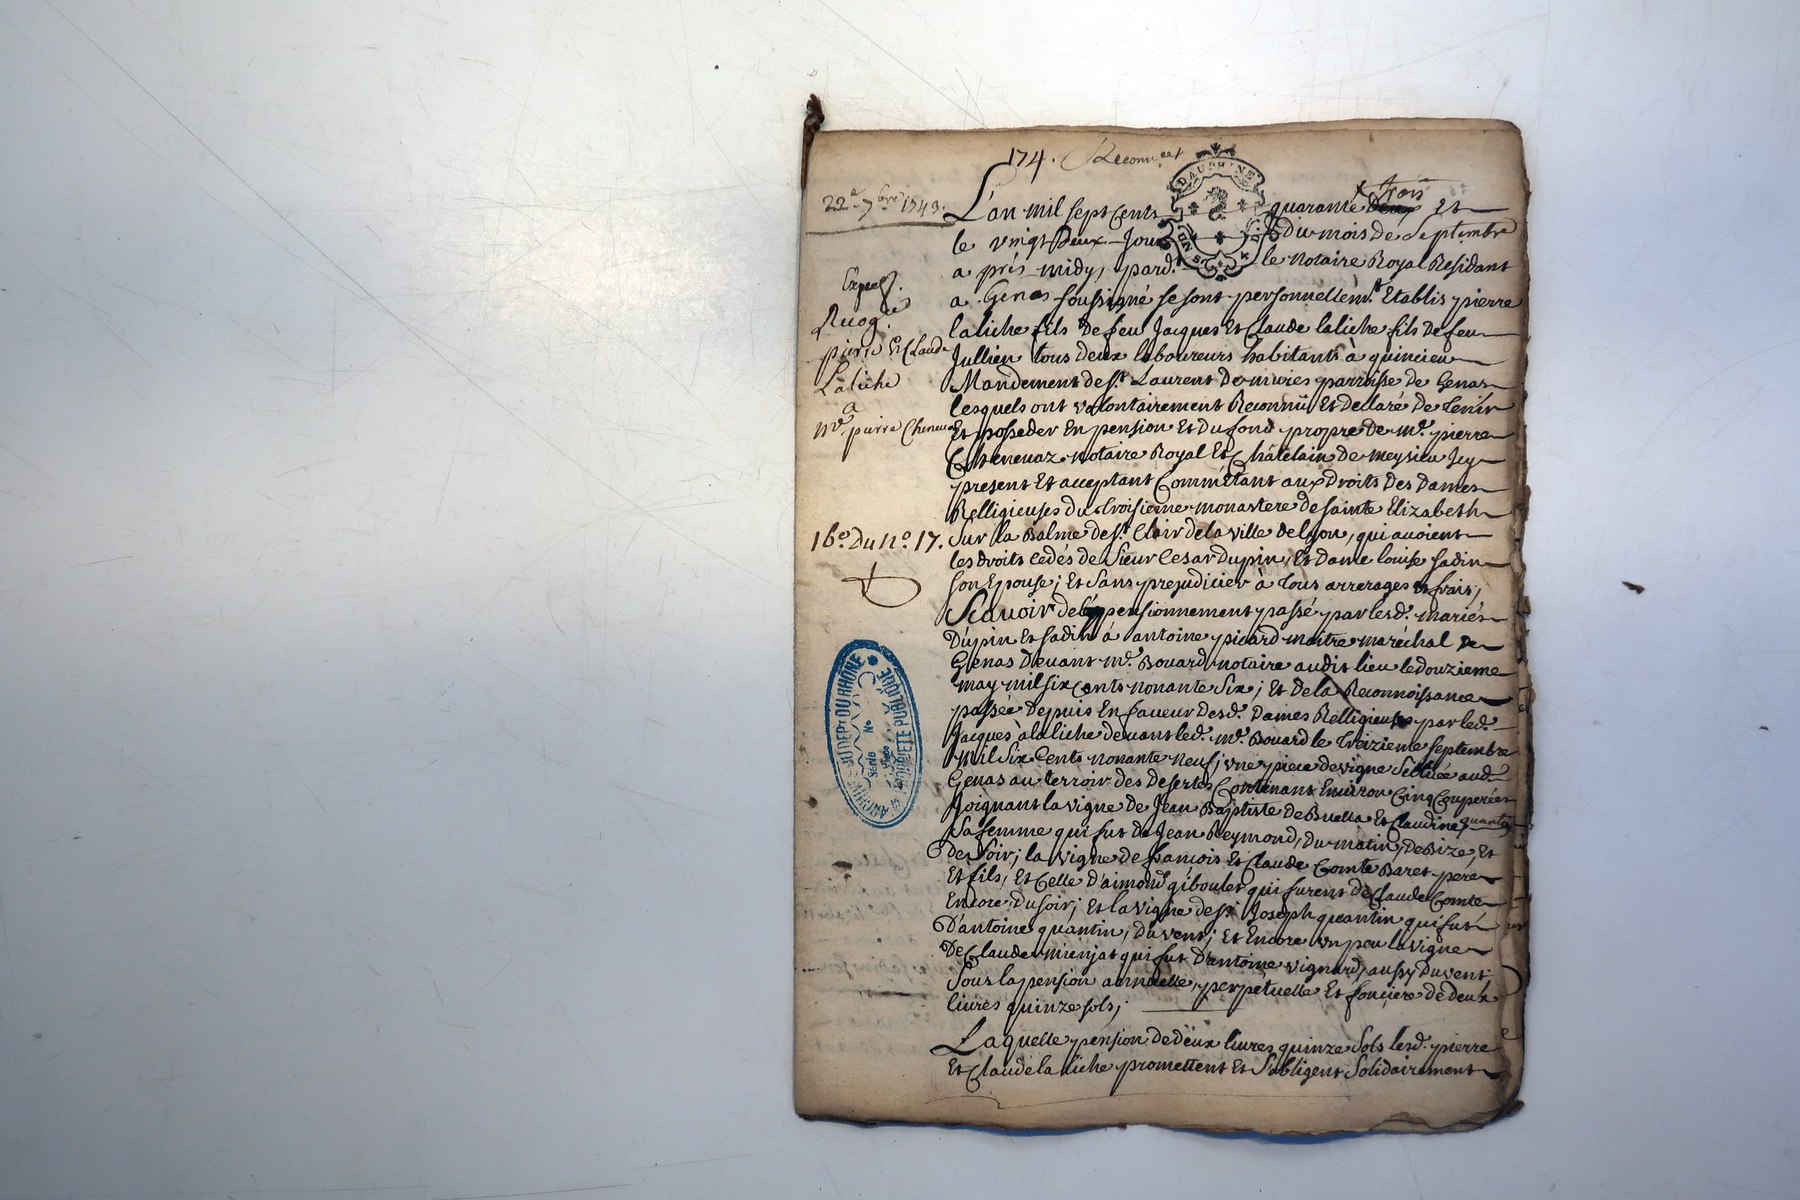 174. Reconn.
22.e 7bre 1743.
Exped.
Recog.e
pierre Et Claude
Laliche
a
m.e pierre Cheneuaz
16.e Du n.o 17.
DAUPHINE
ARCHIVES DU DEP.t DU RHÔNE
Série No
PROPRIÉTÉ PUBLIQUE
L'an mil sept Cents quarante Deux trois Et
le vingt Deux Jour du mois de Septembre
a prés midy, pard.t le Notaire Royal Residant
a Genas soussigné se sont personnellem.t Etablis pierre
laliche fils De feu Jacques Et Claude laliche fils De feu
Jullien tous deux laboureurs habitants à quincieu
Mandement de S.t Laurent De mures parroisse de Genas
lesquels ont volontairement Reconnü Et Declaré De tenir
Et posseder En pension Et Du fond propre De m.e pierre
Cheneuaz notaire Royal Et Châtelain de meysieu Jcy
present Et acceptant Comme Etant aux Droits Des Dames
Relligieuses du troisieme monastere de sainte Elizabeth
Sur la Balme de S.t Clair de la ville de lyon, qui auoient
les droits cedés de Sieur Cesar Dupin, Et Dame louise sadin
son Epouse; Et sans prejudicier à tous arrerages Et frais;
Scauoir de l'appensionnement passé par lesd. mariés
Dupin Et sadin à antoine picard maitre maréchal De
Genas Deuant m.e Bouard notaire audit lieu le douzieme
may mil six Cents nonante Six; Et de la Reconnoissance
passée Depuis En faueur Desd. Dames Relligieuses par led.
Jacques à la liche deuant led. m.e Bouard le treizieme septembre
Mil Six Cents nonante neuf; vne piece de vigne Sittuée aud.
Genas au terroir des desertes Contenant Enuiron Cinq Couperées
Joignant la vigne De Jean Baptiste De Et Claudine quantin
Sa femme qui fut de Jean Reymond, Du matin, De Bize, Et
de Soir; la vigne de francois Et Claude Comte Baret pere
Et fils, Et Celle D'aimond giboulet qui furent De Claude Comte
Encore, Du soir; Et la vigne de S.r Joseph quantin qui fut
D'antoine quantin, Du vent; Et Encore vn peu la vigne
De Claude mienjat qui fut D'antoine vignard, aussy Du vent
Sous la pension annuelle, perpétuelle Et fonciere de deux
liures quinze sols;
Laquelle pension de deux liures quinze Sols lesd. pierre
Et Claude la liche promettent Et S'obligent Solidairement